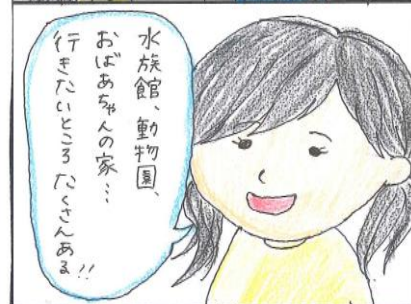 水族館、動物園、
おばあちゃんの家…
行きたいところ たくさんある!!